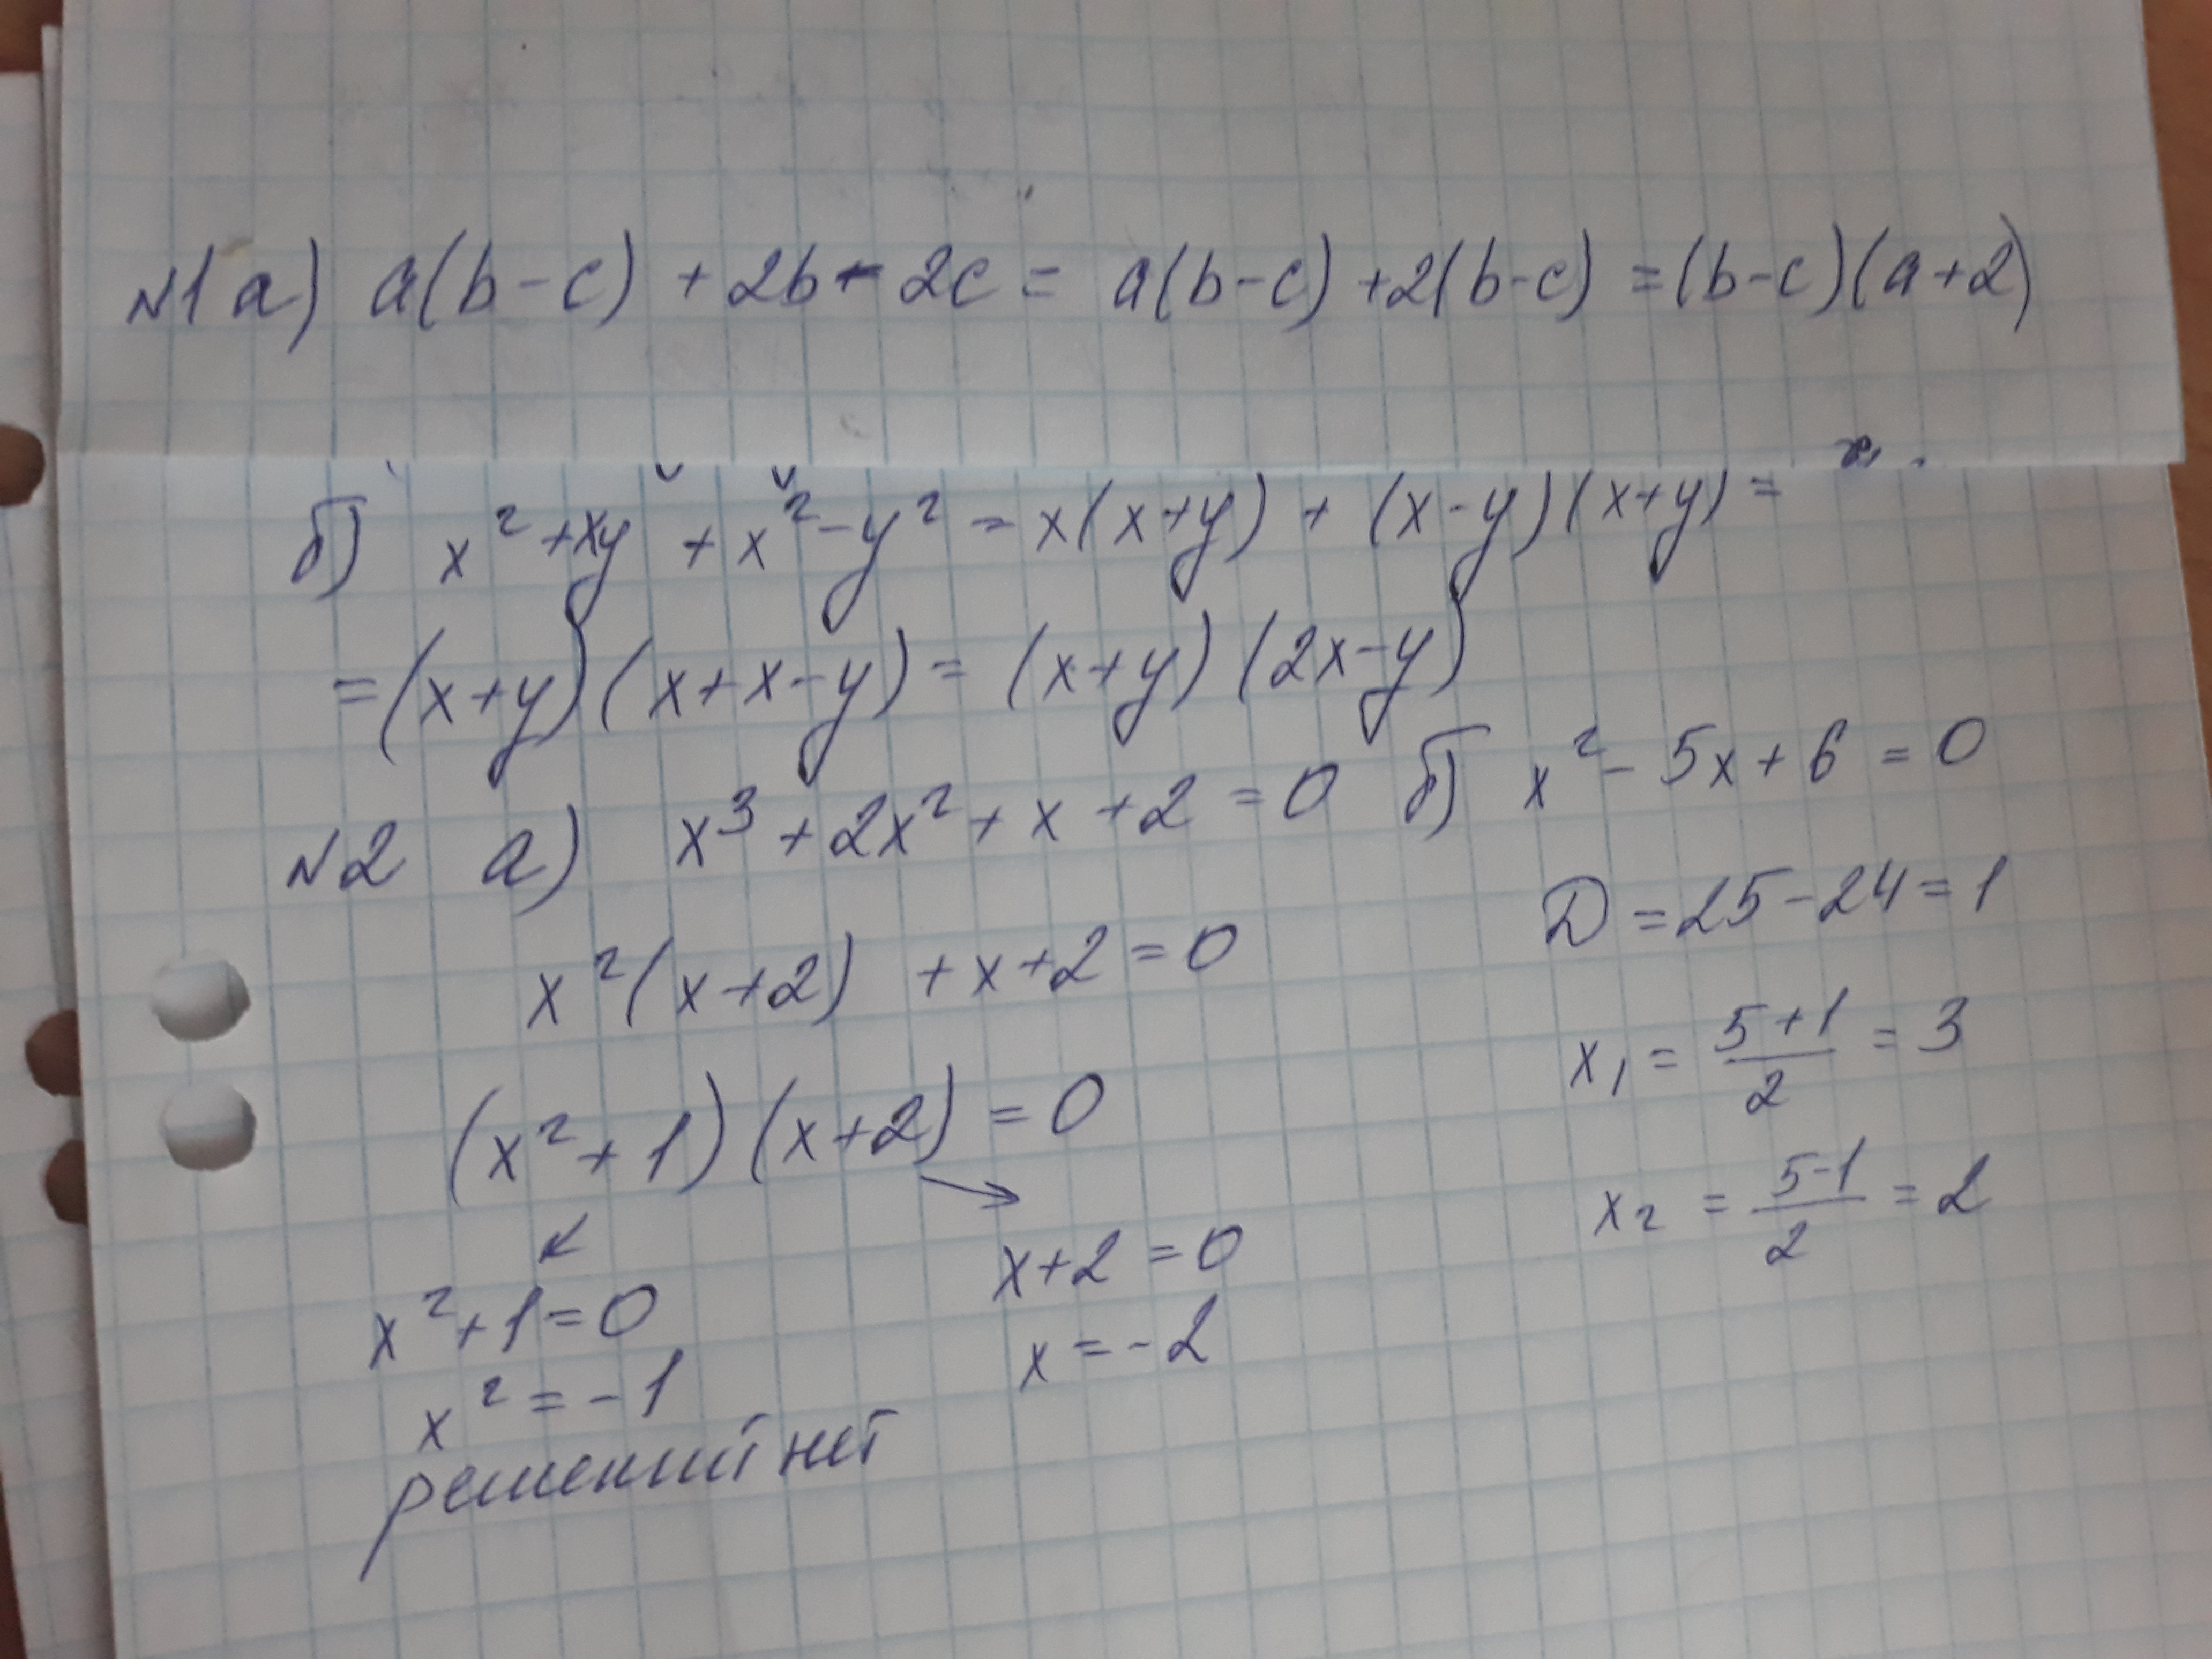 №1 а) a(b-c) + 2b - 2c = a(b-c) + 2(b-c) = (b-c)(a+2)
б) x² + xy + x² - y² = x(x+y) + (x-y)(x+y) =
= (x+y)(x+x-y) = (x+y)(2x-y)
№2 а) x³ + 2x² + x + 2 = 0
x²(x+2) + x + 2 = 0
(x²+1)(x+2) = 0
x² + 1 = 0
x² = -1
решений нет
x + 2 = 0
x = -2
б) x² - 5x + 6 = 0
D = 25 - 24 = 1
x₁ = (5+1)/2 = 3
x₂ = (5-1)/2 = 2